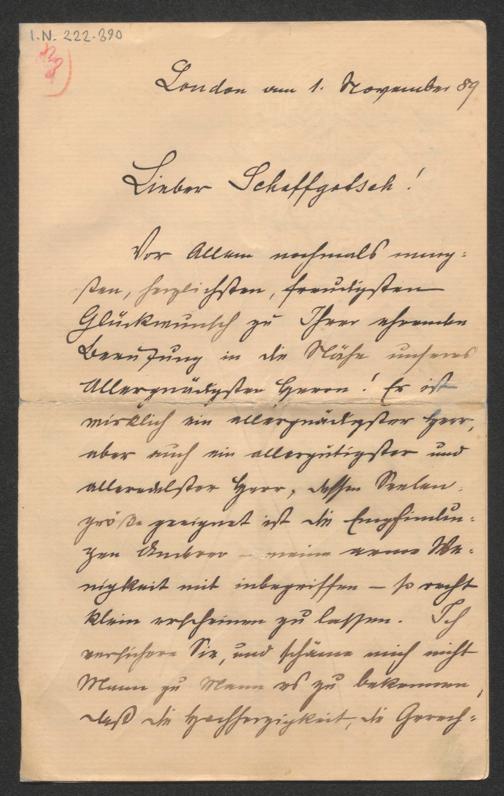 I.N. 222.390
London am 1. November 89
Lieber Schaffgotsch!
Vor Allem nochmals innig-
sten, herzlichsten, freudigsten
Glückwunsch zu Ihrer ehrenden
Berufung in die Nähe unseres
Allergnädigsten Herrn! Er ist
wirklich ein allergnädigster Herr,
aber auch ein allergütigster und
alleredelster Herr, dessen Seelen-
größe geeignet ist die Empfindun-
gen Anderer – meine arme We-
nigkeit mit inbegriffen – so recht
klein erscheinen zu lassen. Ich
versichere Sie, und schäme mich nicht
Mann zu Mann es zu bekennen,
daß die Hochherzigkeit, die Gerech-